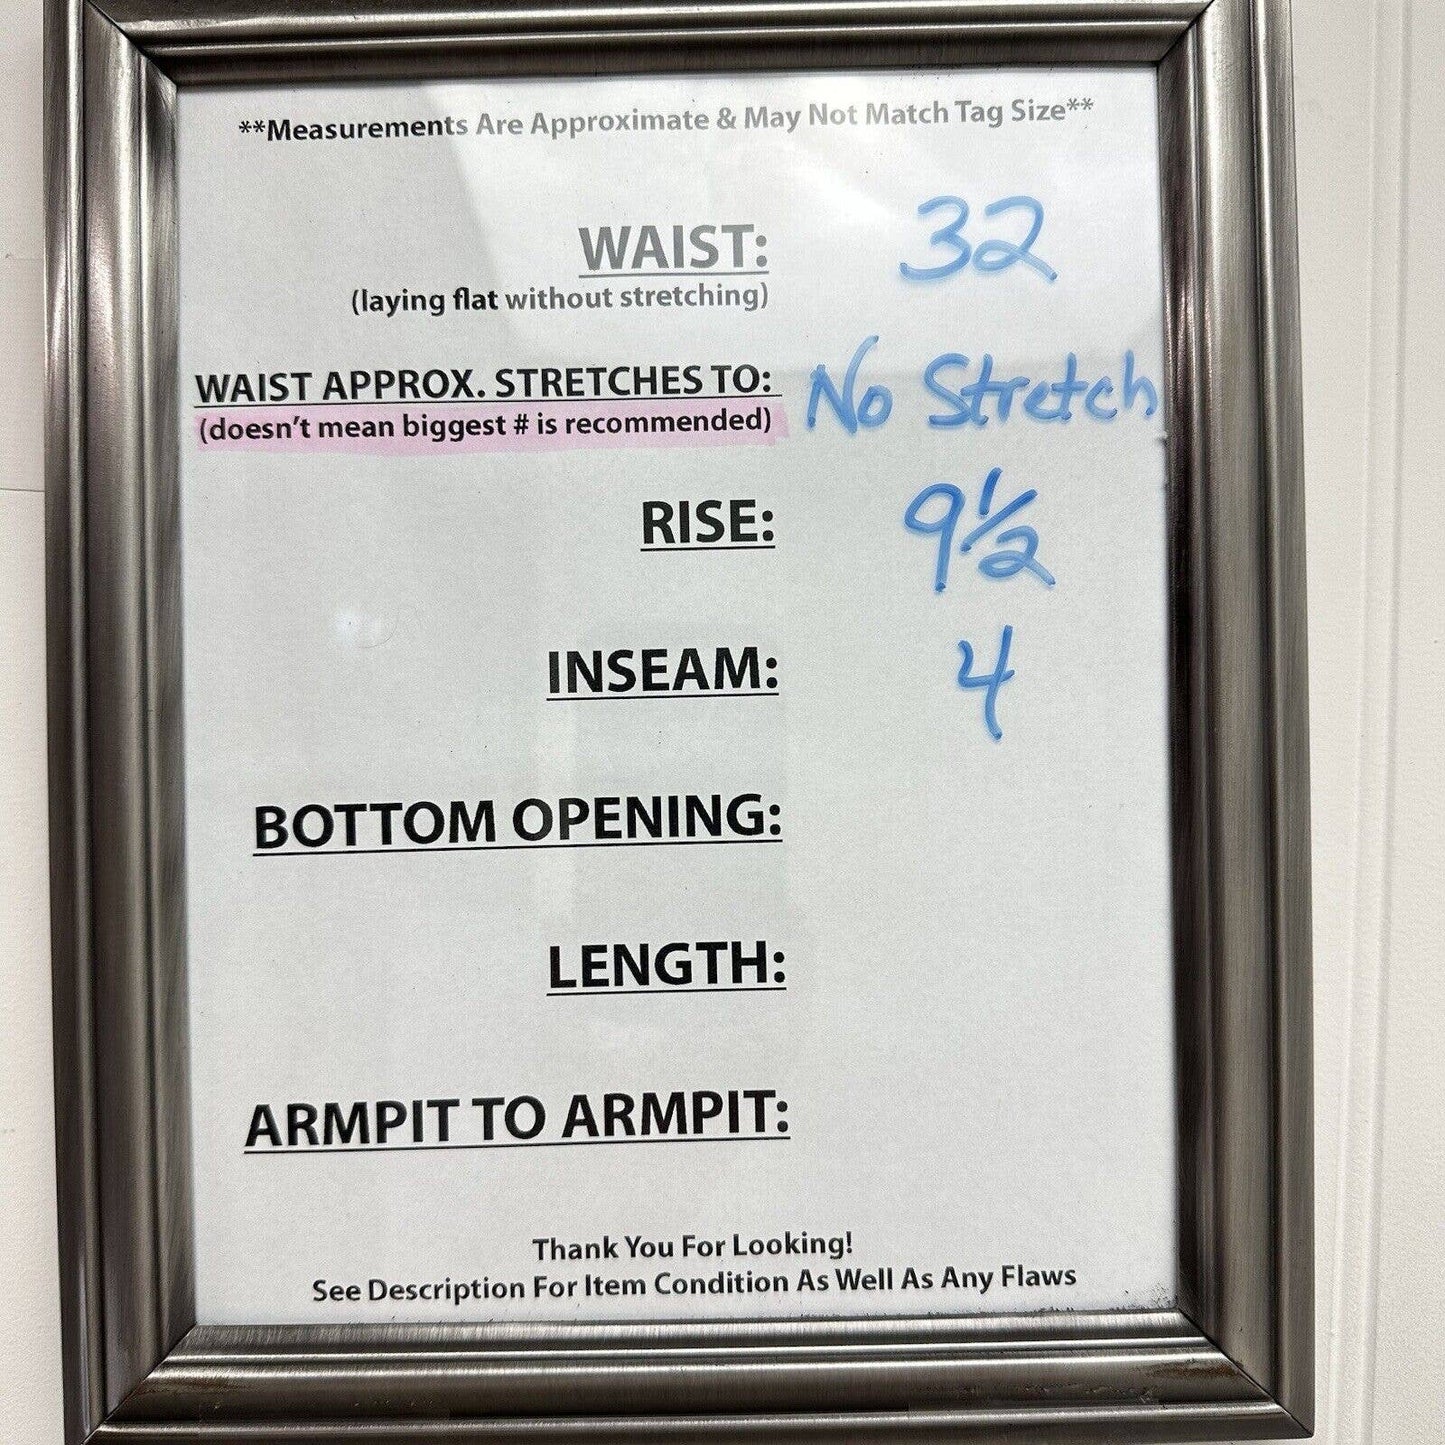 **Measurements Are Approximate & May Not Match Tag Size**
WAIST: 32
(laying flat without stretching)
WAIST APPROX. STRETCHES TO: No Stretch
(doesn't mean biggest # is recommended)
RISE: 9 1/2
INSEAM: 4
BOTTOM OPENING:
LENGTH:
ARMPIT TO ARMPIT:
Thank You For Looking!
See Description For Item Condition As Well As Any Flaws